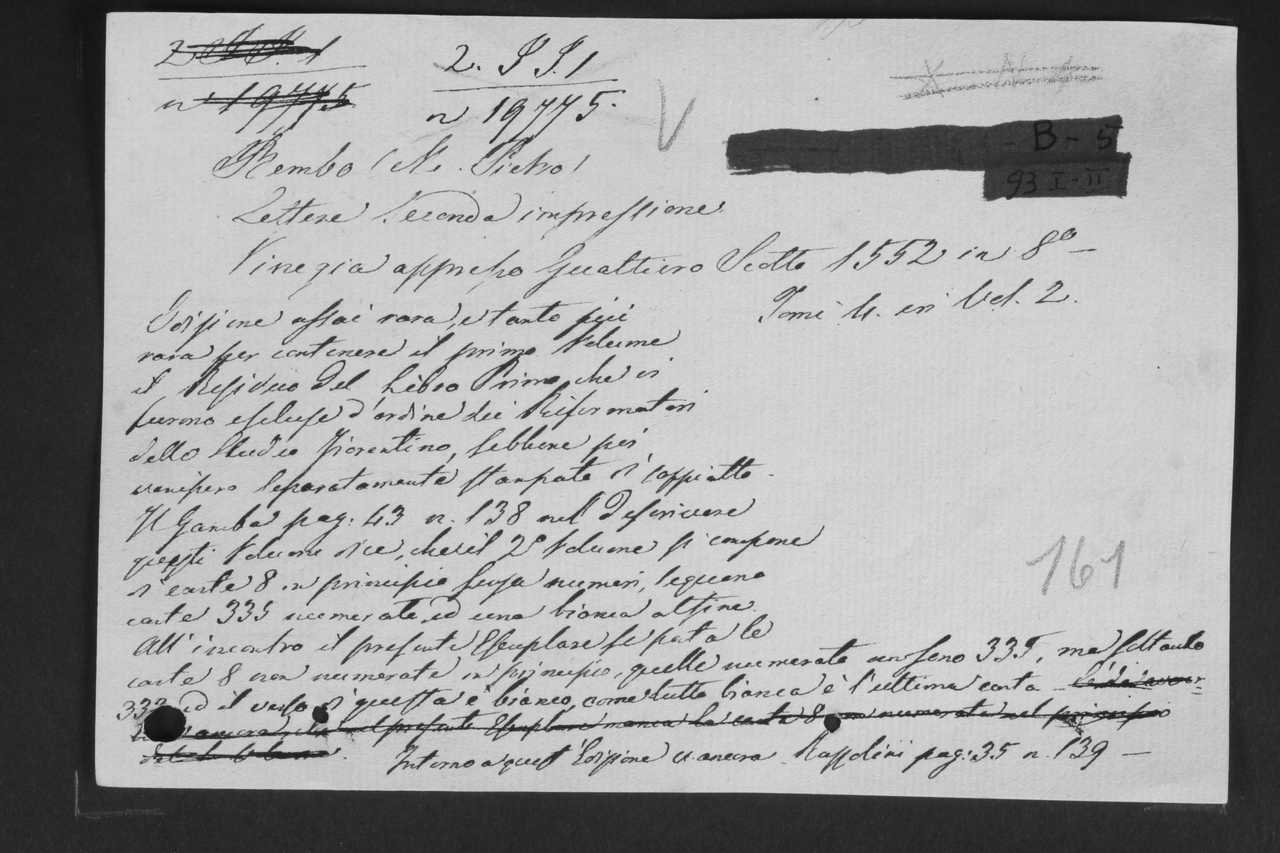 2. I I. 1
n 19775
2. I I. 1
n 19775.
V
- B - 5
93 I-II
Bembo (M. Pietro)
Lettere Seconda impressione
Vinegia appresso Gualtiero Scotto 1552 in 8º
Tomi 4. in Vol. 2.
Edizione assai rara, e tanto più
rara per contenere il primo Volume
il Residuo del Libro Primo che vi
furono escluse d'ordine dei Riformatori
dello Studio Fiorentino, sebbene poi
venissero separatamente stampate di soppiatto.
Il Gamba pag: 43 n. 138 nel descrivere
questi Volumi dice, che il 2º Volume si compone
di carte 8 in principio senza numeri, seguono
carte 335 numerate, ed una bianca alfine.
All'incontro il presente Esemplare se porta le
carte 8 non numerate in principio, quelle numerate non sono 335, ma soltanto
333 ed il verso di questa è bianco, come tutto bianca è l'ultima carta
nel presente Esemplare manca la carta 8 non numerata nel principio
Intorno a quest'Edizione v. ancora Razzolini pag: 35 n. 139 —
161